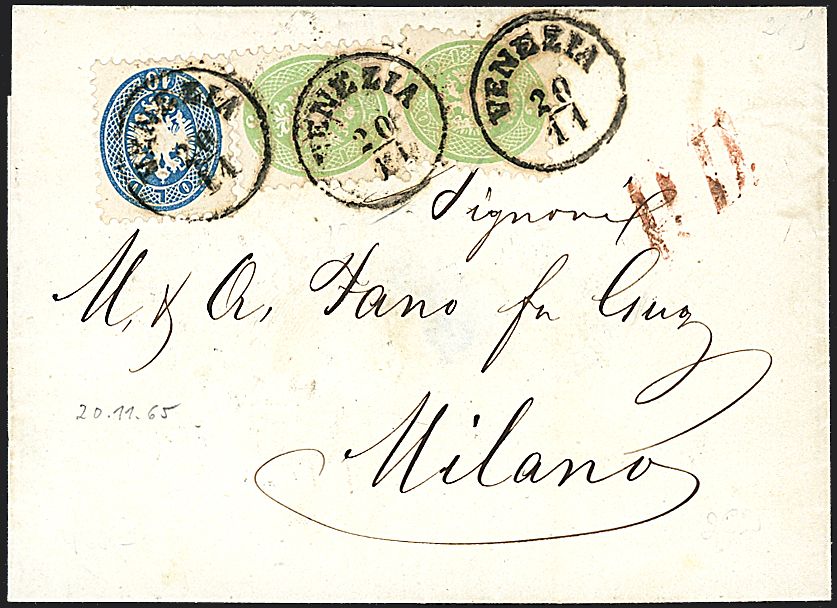 VENEZIA
20
11
VENEZIA
20
11
VENEZIA
20
11
P.D.
Signori
M. & A. Fano fu Gug
Milano
20.11.65